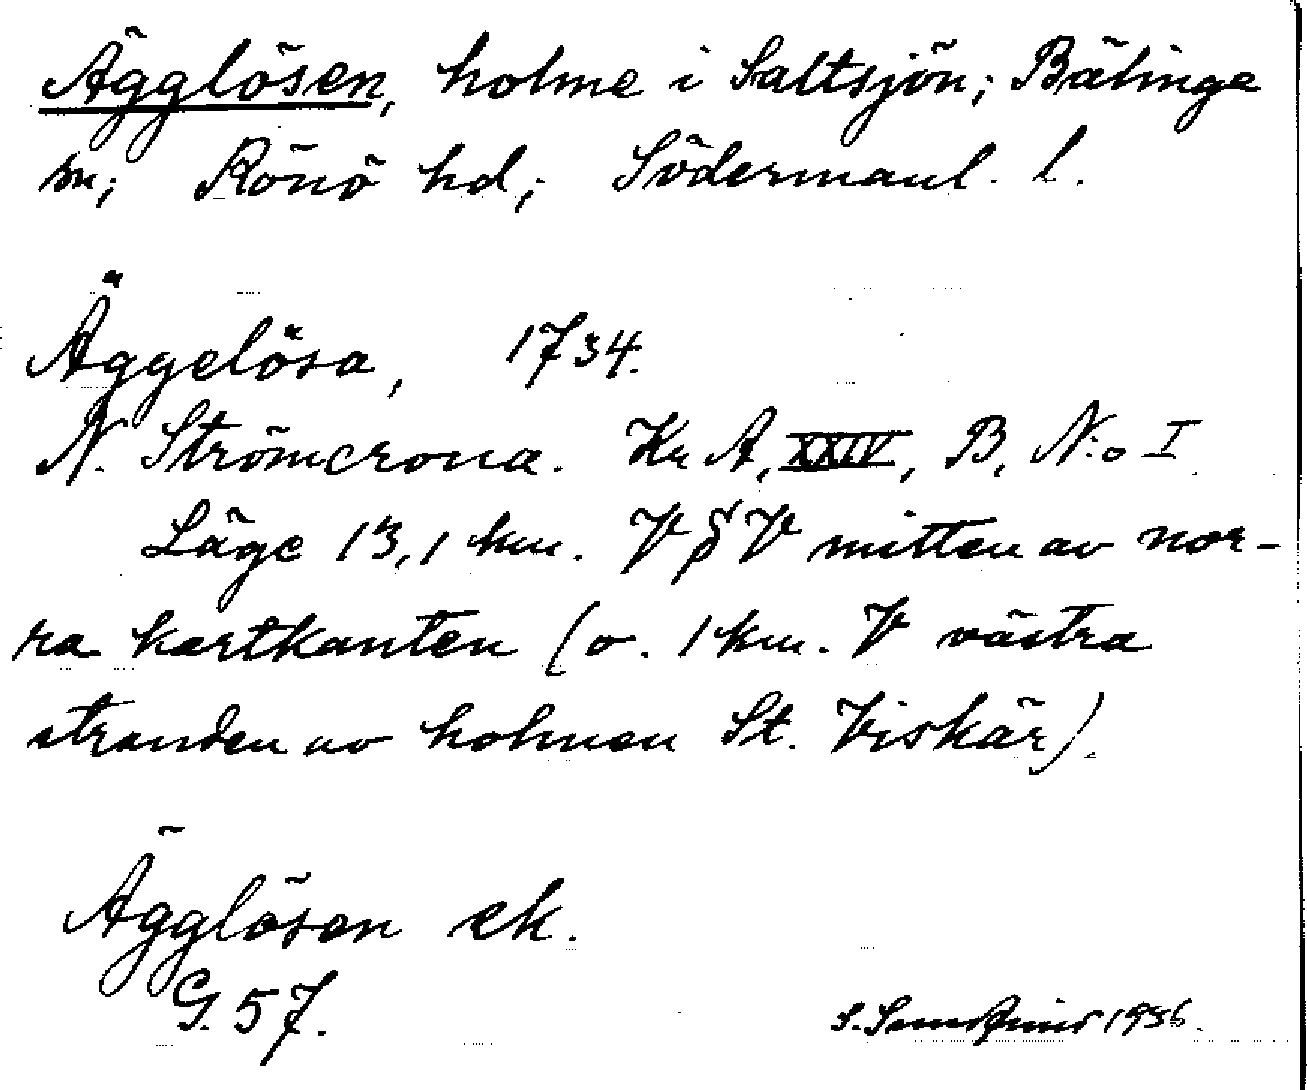 Ägglösen, holme i Saltsjön; Bälinge
sn; Rönö hd; Södermanl. l.
Äggelösa, 1734.
N. Strömcrona. Kr A, XXIV, B, N:o I
Läge 13,1 km. V § V mitten av nor-
ra kartkanten (o. 1 km. V västra
stranden av holmen St. Viskär).
Ägglösen ek.
G. 57.
S. 1936.